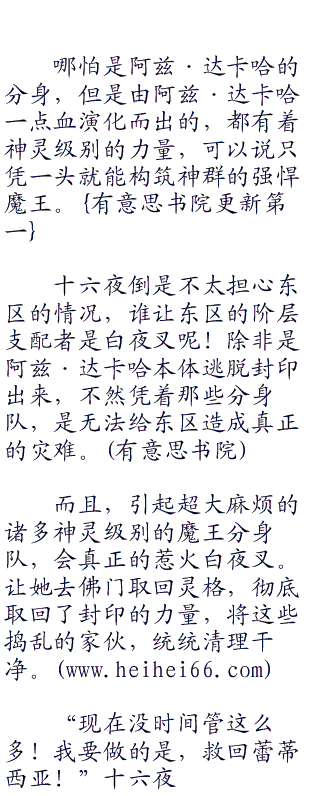 哪怕是阿兹·达卡哈的
分身，但是由阿兹·达卡哈
一点血演化而出的，都有着
神灵级别的力量，可以说只
凭一头就能构筑神群的强悍
魔王。{有意思书院更新第
一}
十六夜倒是不太担心东
区的情况，谁让东区的阶层
支配者是白夜叉呢！除非是
阿兹·达卡哈本体逃脱封印
出来，不然凭着那些分身
队，是无法给东区造成真正
的灾难。(有意思书院)
而且，引起超大麻烦的
诸多神灵级别的魔王分身
队，会真正的惹火白夜叉。
让她去佛门取回灵格，彻底
取回了封印的力量，将这些
捣乱的家伙，统统清理干
净。(www.heihei66.com)
“现在没时间管这么
多！我要做的是，救回蕾蒂
西亚！”十六夜